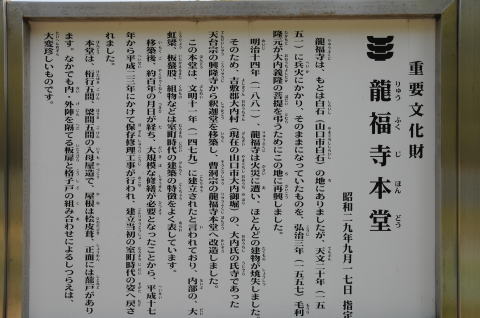 重要文化財
龍福寺本堂
りゅう ふく じ ほん どう
昭和二九年九月一七日 指定
龍福寺は、もとは白石(山口市白石)の地にありましたが、天文二十年(一五
五一)に兵火にかかり、そのままになっていたものを、弘治三年(一五五七)毛利
隆元が大内義隆の菩提を弔うためにこの地に再興しました。
明治十四年(一八八一)、龍福寺は火災に遭い、ほとんどの建物が焼失しました。
そのため、吉敷郡大内村(現在の山口市大内御堀)の、大内氏の氏寺であった
天台宗の興隆寺から釈迦堂を移築し、曹洞宗の龍福寺本堂へ改造しました。
この本堂は、文明十一年(一四七九)に建立されたと言われており、内部の、大
虹梁、板蟇股、組物などは室町時代の建築の特徴をよく表しています。
移築後、約百年の月日が経ち、大規模な修繕が必要となったことから、平成十七
年から平成二三年にかけて保存修理工事が行われ、建立当初の室町時代の姿へ戻さ
れました。
本堂は、桁行五間、梁間五間の入母屋造で、屋根は桧皮葺、正面には蔀戸があり
ます。なかでも内・外陣を隔てる板扉と格子戸の組み合わせによるしつらえは、
大変珍しいものです。